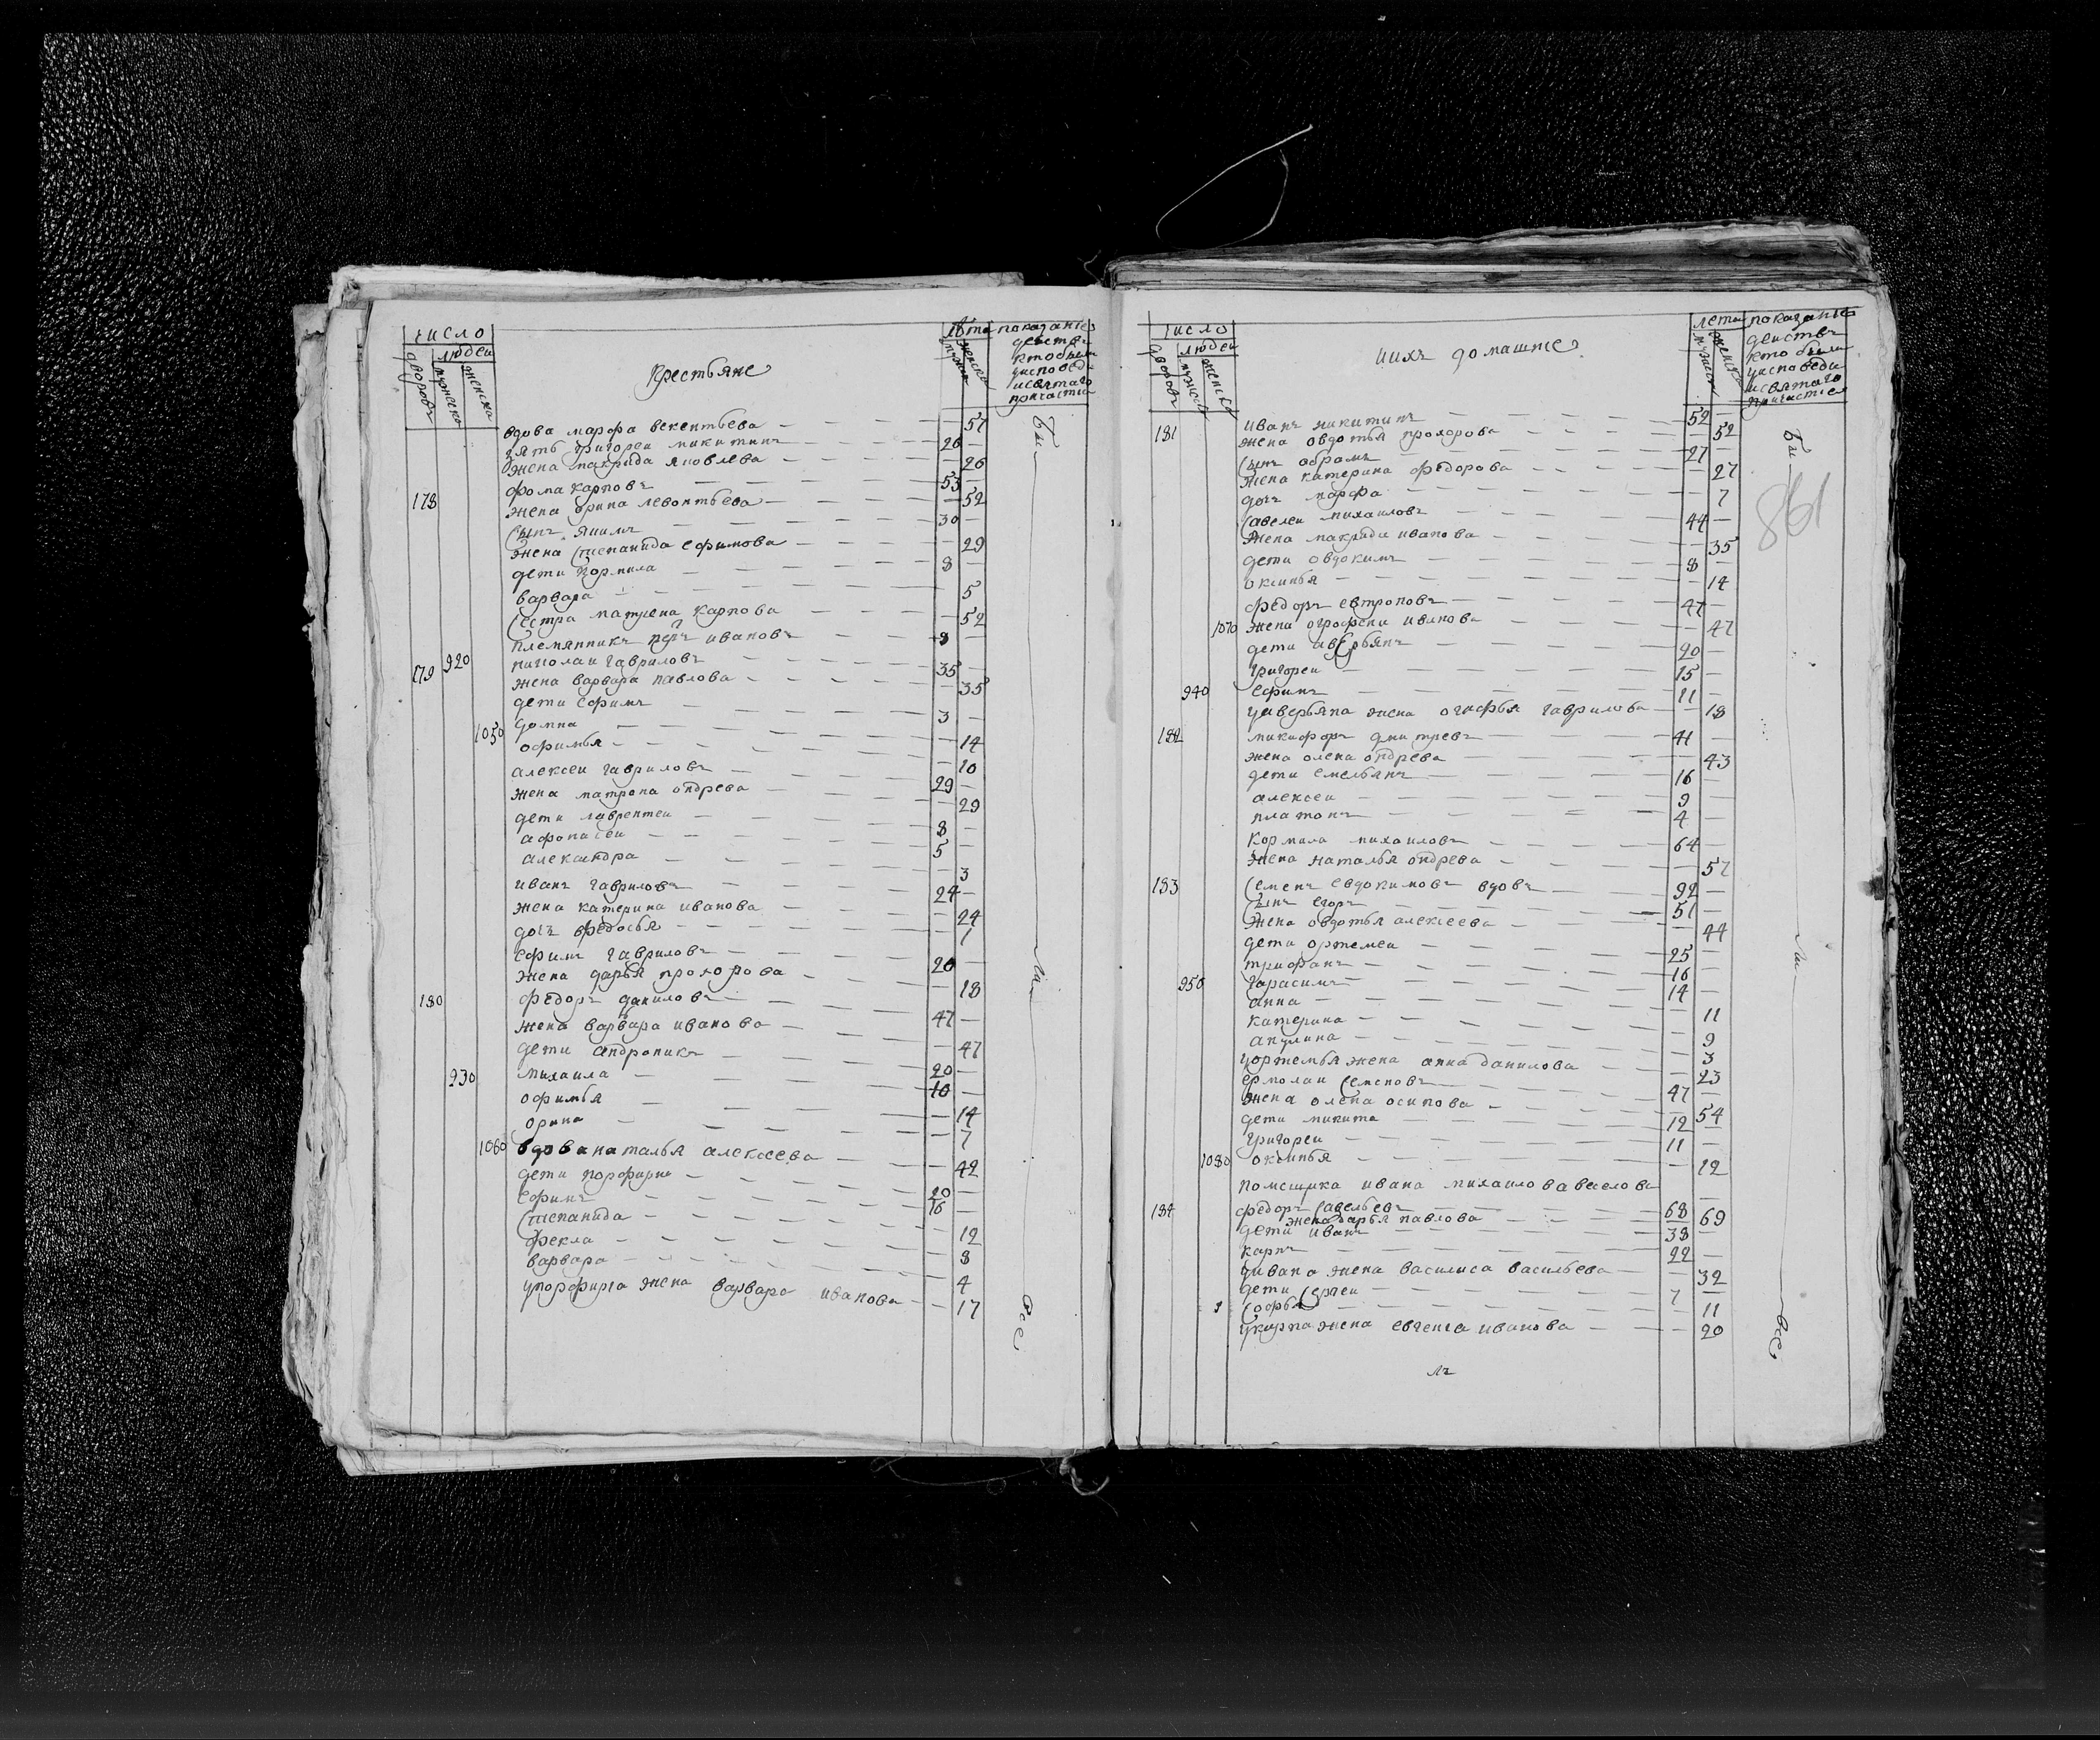 число
людеи
дворовъ
мужеска
женска
крестьяне
лѣта
мужеска
женска
показание
деиства
кто были
уисповеди
исвятаго
причастия
вдова марфа векентьева — 57
зять григореи микитинъ — 26
жена макрида яковлева — 26
178 фома карповъ — 53
жена орина левонтьева — 52
сынъ якимъ — 30
жена степанида ефимова — 29
дети кормила — 8
варвара — 5
сестра матрена карпова — 52
племянникъ петръ ивановъ — 8
179 920 николаи гавриловъ — 35
жена варвара павлова — 35
дети ефимъ — 3
1050 домна — 14
офимья — 10
алексеи гавриловъ — 29
жена матрона ондрева — 29
дети лаврентеи — 8
афонасеи — 5
александра — 3
иванъ гавриловъ — 24
жена катерина иванова — 24
дочь федосья — 1
ефимъ гавриловъ — 20
жена дарья прохорова — 18
180 федоръ даниловъ — 47
жена варвара иванова — 47
дети андроникъ — 20
930 михаила — 10
офимья — 14
орина — 7
1060 вдова наталья алексеева — 42
дети порфирии — 20
ефимъ — 16
степанида — 12
фекла — 8
варвара — 4
упорфирия жена варвара иванова — 17
бы — ли — все
число
людеи
дворовъ
мужеска
женска
иихъ домашние
лета
мужеска
женска
показание
деиствъ
кто были
уисповеди
исвятаго
причастия
861
181 иванъ никитинъ — 52
жена овдотья прохорова — 52
сынъ обрамъ — 27
жена катерина федорова — 27
дочь марфа — 7
савелеи михаиловъ — 44
жена макрида иванова — 35
дети овдокимъ — 8
оксинья — 14
федоръ евтроповъ — 47
1070 жена огрофена иванова — 47
дети аверьянъ — 20
григореи — 15
940 ефимъ — 11
уаверьяна жена огафья гаврилова — 18
182 микифоръ дмитревъ — 41
жена олена ондрева — 43
дети емельянъ — 16
алексеи — 9
платонъ — 4
кормила михаиловъ — 64
жена наталья ондрева — 57
183 семенъ евдокимовъ вдовъ — 92
сынъ егоръ — 51
жена овдотья алексеева — 44
дети ортемеи — 25
трифанъ — 16
950 гарасимъ — 14
анна — 11
катерина — 9
акулина — 3
уортемья жена анна данилова — 23
ермолаи семеновъ — 47
жена олена осипова — 54
дети никита — 12
григореи — 11
1080 оксинья — 12
помещика ивана михаилова
184 федоръ савельевъ — 68
жена дарья павлова — 69
дети иванъ — 38
карпъ — 22
уивана жена василиса васильева — 32
дети сергеи — 7
софья — 11
укарпа жена евгения иванова — 20
бы — ли — все